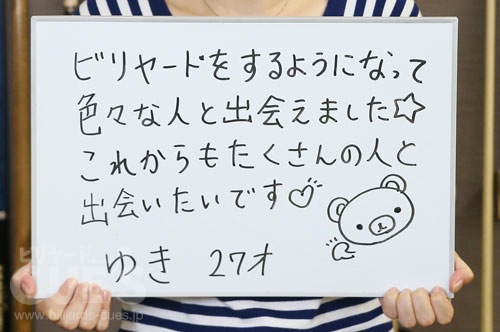 ビリヤードをするようになって
色々な人と出会えました☆
これからもたくさんの人と
出会いたいです♡
ゆき 27才
ビリヤード
CUES
www.billiards-cues.jp